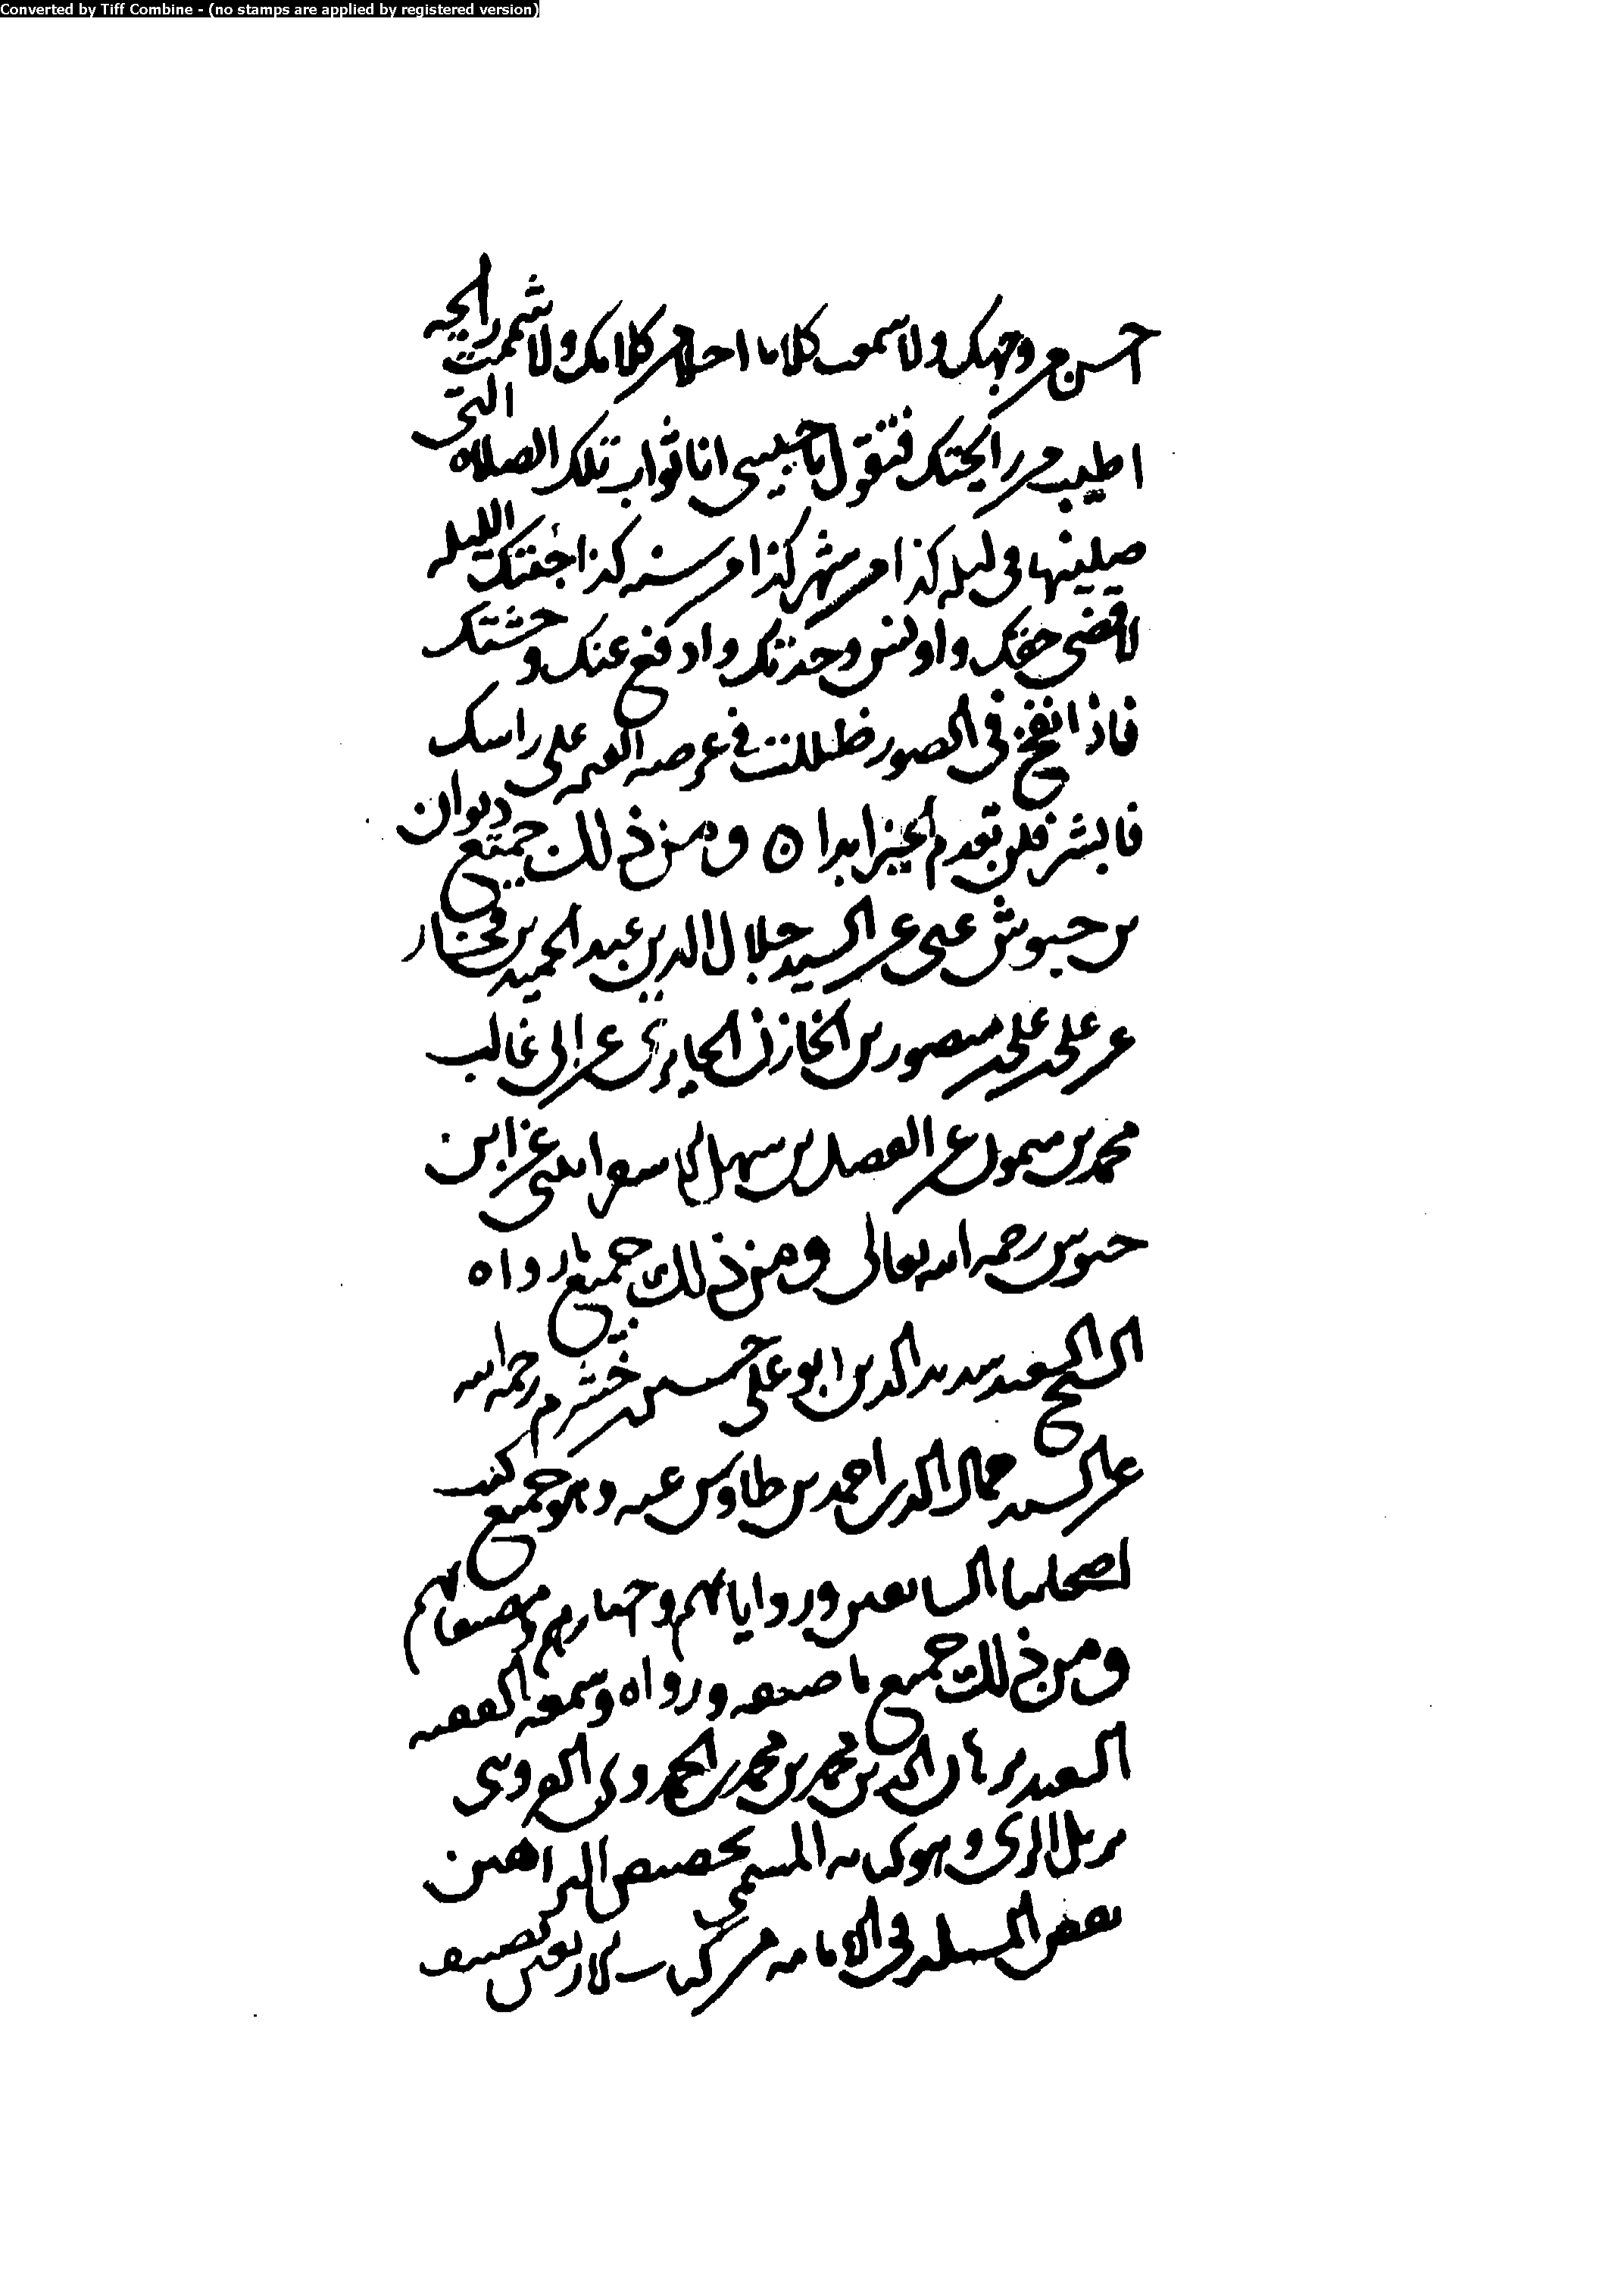 Converted by Tiff Combine - (no stamps are applied by registered version)
احسن من وجهك ولا سمعت كلاما احلى من كلامك ولا شممت رايحه
اطيب من رايحتك فتقول يا حبيبي انا ثواب تلك الصلاه التي
صليتها في ليله كذا من شهر كذا من سنه كذا جئتك الليله
لاقضي حقك واونس وحدتك وادفع عنك وحشتك
فاذا نفخ في الصور ظللت في عرصه القيمه على راسك
فابشر فلن تعدم الخير ابدا ه ومن ذلك جميع ديوان
بن حبوش عني عن السيد جلال الدين عبد الحميد بن فخار
عن علي بن علي بن منصور بن الخازن الحايري عن ابي غالب
محمد بن سهل عن ابن
حبوس رحمه الله تعالى ومن ذلك جميع ما رواه
الشيخ السعيد سديد الدين ابو علي حسين بن خشرم رحمه الله
عن السيد جمال الدين احمد بن طاوس عنه وهو جميع كتب
اصحابنا السابقين ورواياتهم واجازاتهم ومصنفاتهم
ومن ذلك جميع ما صنفه ورواه وسمعه الفقيه
السعيد برهان الدين محمد بن محمد القزويني
نزيل الري وهو كتابه المسمى بتخصيص البراهين
نقض المسئله في الامامه من كتاب الاربعين تصنيف